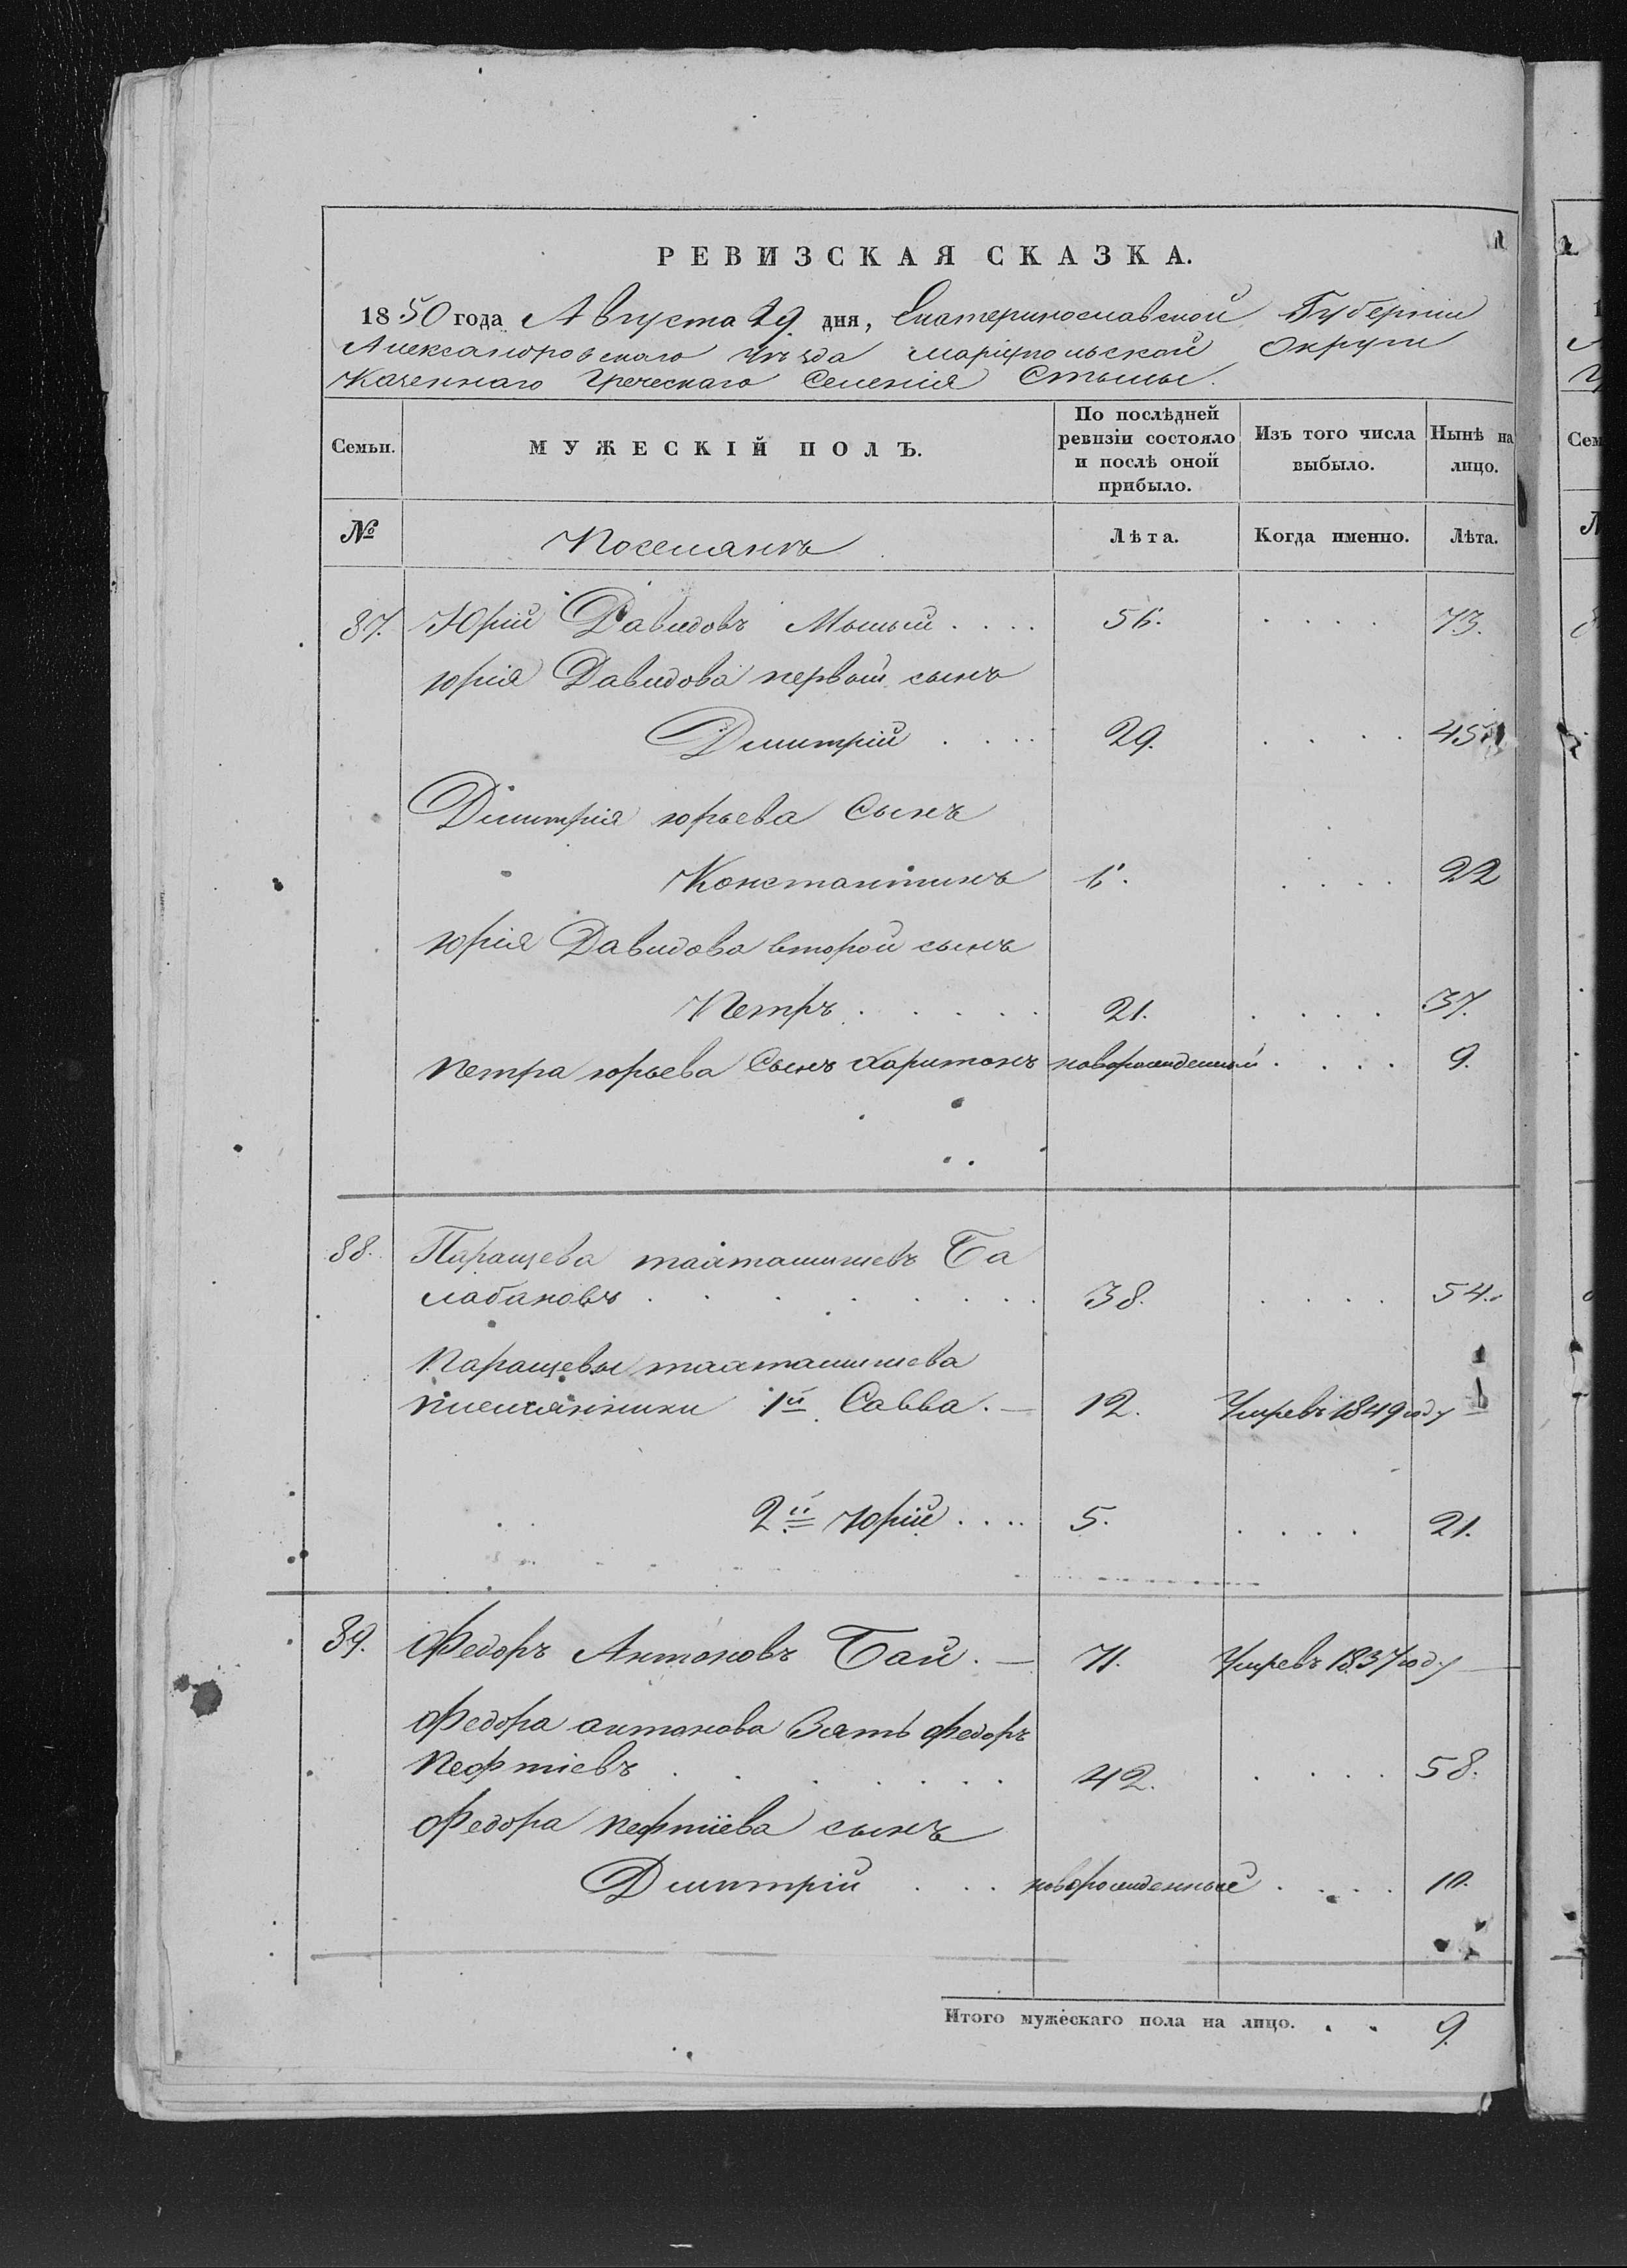 РЕВИЗСКАЯ СКАЗКА.
1850 года Августа 29 дня, Екатеринославской Губерніи
Александровскаго уѣзда Маріупольской Округи
Казеннаго Греческаго Селенія Стылы.
Семьи. МУЖЕСКІЙ ПОЛЪ. По послѣдней ревизіи состояло и послѣ оной прибыло. Изъ того числа выбыло. Нынѣ на лицо.
№ Поселянъ Лѣта. Когда именно. Лѣта.
87. Юрій Давидовъ 56. 73.
юрія Давидова первый сынъ
Дмитрій 29. 45
Дмитрія юрьева Сынъ
Константинъ 6. 22
юрія Давидова второй сынъ
Петръ 21. 37.
Петра юрьева Сынъ Харитонъ новорожденный 9.
88. Паращева Ба
лабановъ 38. 54.
Паращевы
племянники 1й Савва. 12. Умре въ 1849 году
2й Юрій 5. 21.
89. Федоръ Антоновъ Бай. 71. Умре въ 1837 году
Федора антонова Зять Федоръ
Пефтіевъ 42. 58.
Федора пефтіева сынъ
Дмитрій новорожденный 10.
Итого мужескаго пола на лицо. 9.